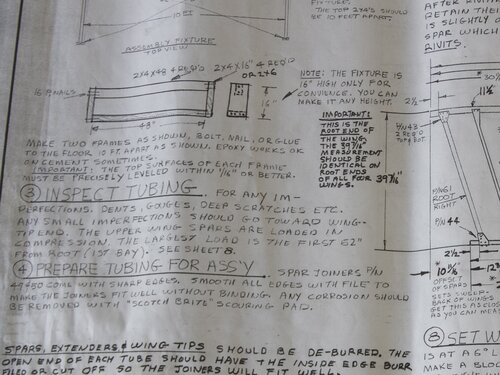 FIXTURE.
THE TOP 2X4'S SHOULD
BE 10 FEET APART.
10 FT
ASSEMBLY FIXTURE
TOP VIEW
AFTER RIVITI
RETAIN THEI
IS SLIGHTLY O
SPAR WHICH
RIVITS.
2X4X48 4 REQ'D
2X4X16" 4 REQ'D
OR 2X6
16 P NAILS
48"
16"
NOTE: THE FIXTURE IS
16" HIGH ONLY FOR
CONVIENCE. YOU CAN
MAKE IT ANY HEIGHT.
IMPORTANT:
THIS IS THE
ROOT END OF
THE WING.
THE 39 7/16
MEASUREMENT
SHOULD BE
IDENTICAL ON
ROOT ENDS
OF ALL FOUR
WINGS.
39 7/16
MAKE TWO FRAMES AS SHOWN, BOLT, NAIL, OR GLUE
TO THE FLOOR 10 FT. APART AS SHOWN. EPOXY WORKS OK
ON CEMENT SOMETIMES.
IMPORTANT: THE TOP SURFACES OF EACH FRAME
MUST BE PRECISELY LEVELED WITHIN 1/16" OR BETTER.
③ INSPECT TUBING FOR ANY IM-
PERFECTIONS, DENTS, GOUGES, DEEP SCRATCHES ETC.
ANY SMALL IMPERFECTIONS SHOULD GO TOWARD WING-
TIP END. THE UPPER WING SPARS ARE LOADED IN
COMPRESSION. THE LARGEST LOAD IS THE FIRST 62"
FROM ROOT (1ST BAY). SEE SHEET 8.
④ PREPARE TUBING FOR ASS'Y
SPAR JOINERS P/N
49&50 COME WITH SHARP EDGES. SMOOTH ALL EDGES WITH FILE TO
MAKE THE JOINERS FIT WELL WITHOUT BINDING. ANY CORROSION SHOULD
BE REMOVED WITH "SCOTCH BRITE" SCOURING PAD.
SPARS, EXTENDERS & WING TIPS SHOULD BE DE-BURRED. THE
OPEN END OF EACH TUBE SHOULD HAVE THE INSIDE EDGE BURR
FILED OR CUT OFF SO THE JOINERS WILL FIT WELL.
2 1/2
11 1/8
P/N 43
2 REQ'D
ROOT
RIGHT
P/N 44
2 1/2
OFFSET
OF SPARS
BACK OF WINGS
AS YOU CAN MEAS
⑧ SET W
IS AT A 6° L
MAKE A SLO